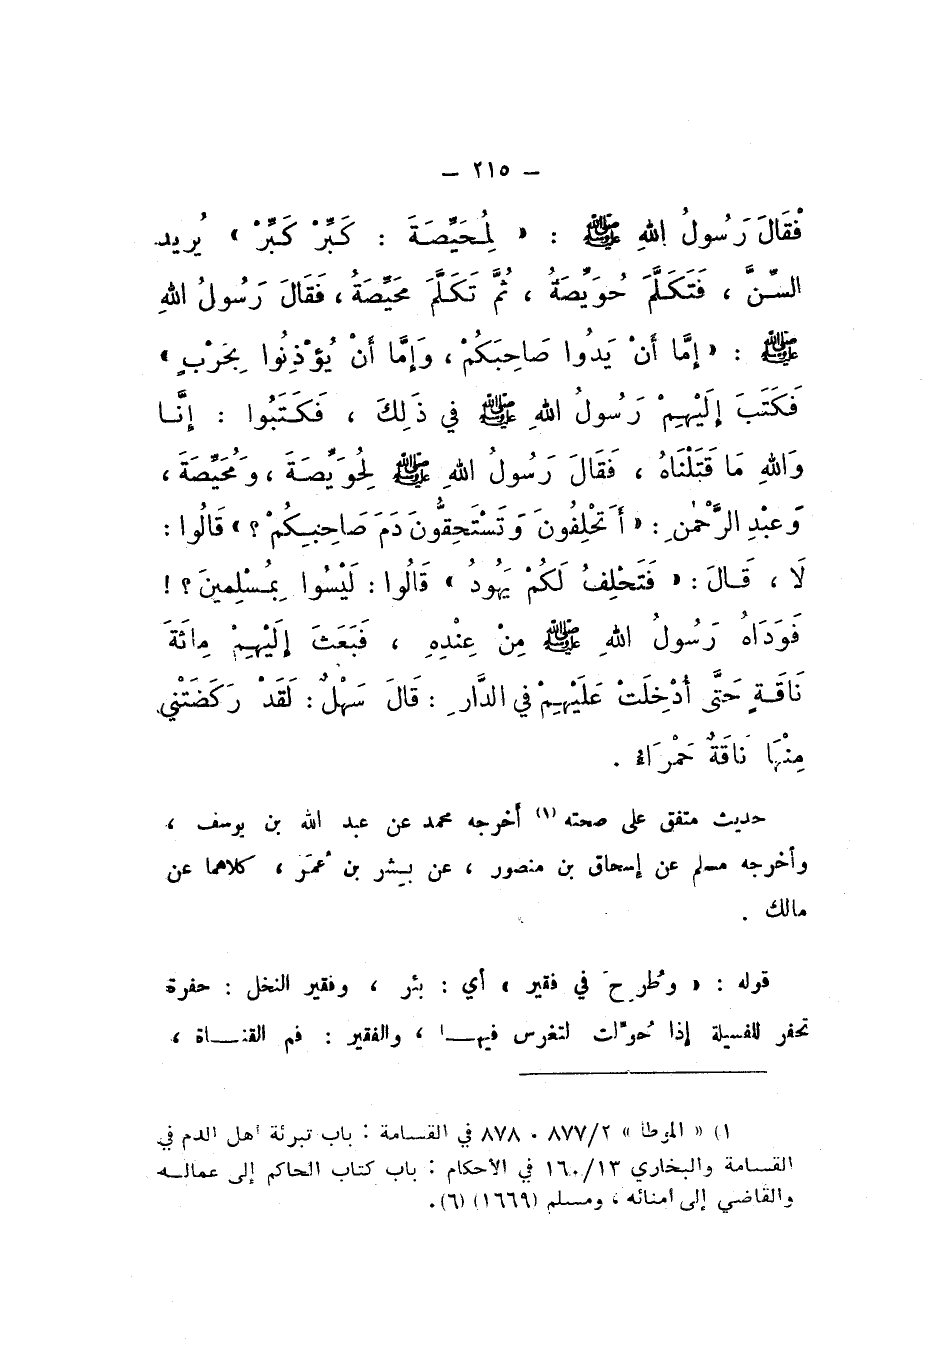 — ٢١٥ —
فَقَالَ رَسُولُ اللهِ ﷺ : « لِمُحَيِّصَةَ : كَبِّرْ كَبِّرْ » يُرِيد
السِّنَّ ، فَتَكَلَّمَ حُوَيِّصَةُ ، ثُمَّ تَكَلَّمَ مُحَيِّصَةُ ، فَقَالَ رَسُولُ اللهِ
ﷺ : « إِمَّا أَنْ يَدُوا صَاحِبَكُمْ ، وَإِمَّا أَنْ يُؤْذِنُوا بِحَرْبٍ »
فَكَتَبَ إِلَيْهِمْ رَسُولُ اللهِ ﷺ فِي ذَلِكَ ، فَكَتَبُوا : إِنَّا
وَاللهِ مَا قَتَلْنَاهُ ، فَقَالَ رَسُولُ اللهِ ﷺ لِحُوَيِّصَةَ ، وَمُحَيِّصَةَ ،
وَعَبْدِ الرَّحْمٰنِ : « أَتَحْلِفُونَ وَتَسْتَحِقُّونَ دَمَ صَاحِبِكُمْ ؟ » قَالُوا :
لَا ، قَالَ : « فَتَحْلِفُ لَكُمْ يَهُودُ » قَالُوا : لَيْسُوا بِمُسْلِمِينَ ؟ !
فَوَدَاهُ رَسُولُ اللهِ ﷺ مِنْ عِنْدِهِ ، فَبَعَثَ إِلَيْهِمْ مِائَةَ
نَاقَةٍ حَتَّى أُدْخِلَتْ عَلَيْهِمْ فِي الدَّارِ : قَالَ سَهْلٌ : لَقَدْ رَكَضَتْنِي
مِنْهَا نَاقَةٌ حَمْرَاءُ .
حديث متفق على صحته (١) أخرجه محمد عن عبد الله بن يوسف ،
وأخرجه مسلم عن إسحاق بن منصور ، عن بِشر بن عُمَر ، كلاهما عن
مالك .
قوله : « وطُرِحَ في فقير » أي : بئر ، وفقير النخل : حفرة
تحفر للفسيلة إذا حُوّلت لتغرس فيها ، والفقير : فم القناة ،
١) « الموطأ » ٨٧٧/٢ . ٨٧٨ في القسامة : باب تبرئة أهل الدم في
القسامة والبخاري ١٦٠/١٣ في الأحكام : باب كتاب الحاكم إلى عماله
والقاضي إلى امنائه ، ومسلم (١٦٦٩) (٦) .